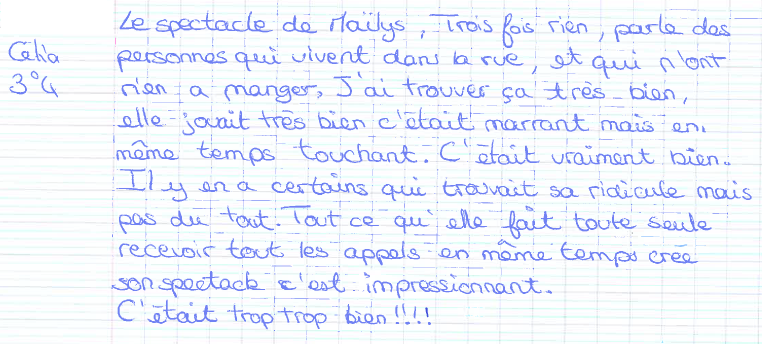 Le spectacle de Maïlys, Trois fois rien, parle des
Célia
personnes qui vivent dans la rue, et qui n'ont
3°4
rien a manger, J'ai trouver ça très bien,
elle jouait très bien c'était marrant mais en
même temps touchant. C'était vraiment bien.
Il y en a certains qui trouvait sa ridicule mais
pas du tout. Tout ce qu'elle fait toute seule
recevoir tout les appels en même temps crée
son spectacle c'est impressionnant.
C'était trop trop bien !!!!